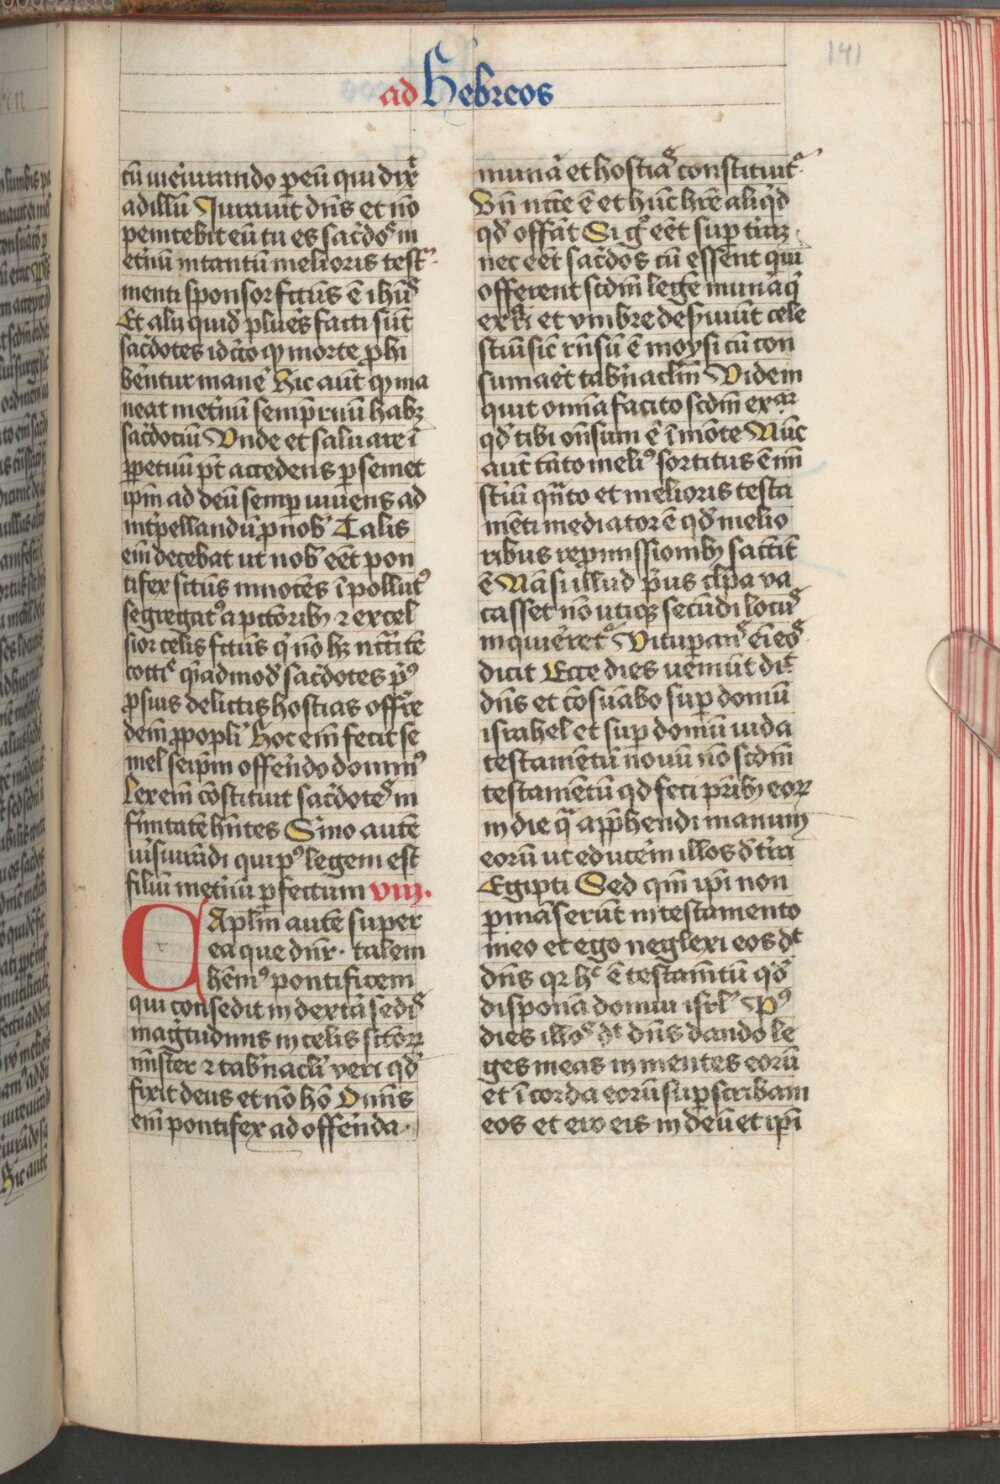 ad Hebreos
141
cū iureiurando p eū qui dix͛t
ad illū Iurauit dn̄s et nō
penitebit eū tu es sac̄dos in
et̄nū in tantū melioris testa
menti sponsor fct̄us ē ihūs
Et alii quid̄ plures facti sūt
sac̄dotes idc̄co qꝫ morte ꝓhi
bentur man̄e Hic aūt qꝫ ma
neat in et̄nū semp̄ternū habꝫ
sac̄dotiū Vnde et saluare ī
ꝑpetuū pt̄ accedens ꝑ semet
ipm̄ ad deū semp uiuens ad
int̄pellandū ꝓ nob̄ Talis
em̄ decebat ut nob̄ eēt pon
tifex sctūs innocēs īpollutꝰ
segregatꝰ a pct̄oribꝫ ⁊ excel
sior celis fct̄us q̄ nō hꝫ nc̄c̄itatē
cotti᷒ q̄admod̄ sac̄dotes p͛ꝰ
ꝓ suis delictis hostias offr̄re
dein̄ ꝓ popl̄i Hoc em̄ fecit se
mel seipm̄ offerēdo dominꝰ
Lex em̄ cōstituit sac̄dotes in
firmitatē hn̄tes Sermo autē
iurisiurādi qui pꝰ legem est
filiū in et̄nū ꝑfectum viii.
CApl̄m autē super
ea que dn̄r. talem
hēmꝰ pontificem
qui consedit in dext̄a sedis
magtudinis in celis sct̄oꝝ
minister ⁊ tab̄nacl̄i veri qd̄
fixit deus et nō hō Omīs
em̄ pontifex ad offerēda.
mun̄a et hostias constituit᷑
Vn̄ nc̄c̄e ē et hūc hr̄e aliqd̄
qd̄ offāt Si gͦ eēt sup t̄rā
nec eēt sac̄dos cū essent qui
offerent scdm̄ legē mun̄a q̄
exꝑi et vmbre deseruiūt cele
stiū sic̄ rn̄sū ē moysi cū con
sumaēt tab̄naclm̄ Vide in
quit omīa facito scdm̄ exar
qd̄ tibi oñsum ē ī mōte Nūc
aut̄ tāto meliꝰ sortitus ē mi
st̄iū qn̄to et melioris testa
mēti mediator ē qd̄ melio
ribus repmissionibꝫ sacc̄it
ē Nā si illud p̄us clpa va
casset nō utiqꝫ secūdi locus
inquiēret᷑ Vitupans em̄ eos
dicit Ecce dies ueniūt dic̄
dn̄s et cōsūabo sup domū
israhel et sup domū iuda
testamētū nouū nō scdm̄
testamētū qd̄ feci prībꝫ eoꝝ
in die qͣ app̄hendi manum
eorū ut educerem illos d̄ t̄ra
Egipti Sed qm̄ ipi non
ꝑmāserūt in testamento
meo et ego neglexi eos dt̄
dn̄s qr hͦ ē testam̄tū qd̄
disponā domui isrl̄ Pꝰ
dies illos dt̄ dn̄s dando le
ges meas in mentes eorū
et ī corda eorū supscribam
eos et ero eis in deū et ipī